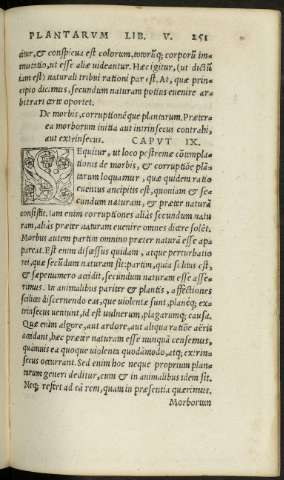 PLANTARVM LIB. V. 251
ditur, & conspicua est colorum, totorúmq; corporũ im
mutatio, ut esse aliæ videantur. Hæc igitur, (ut dictũ
iam est) naturali tribui rationi par est. At, quæ prin-
cipio diximus, secundum naturam potius euenire ar
bitrari certe oportet.
De morbis, corruptionéque plantarum. Præter-
ea morborum initia aut intrinsecus contrahi,
aut extrinsecus. CAPVT IX.
SEquitur, ut loco postremæ cõtempla
tionis de morbis, & corruptiõe plã
tarum loquamur, quæ quidem ratio
euentus ancipitis est, quoniam & se-
cundum naturam, & præter naturã
consistit. iam enim corruptiones aliâs secundum natu
ram, aliâs præter naturam euenire omnes dicere solẽt.
Morbus autem partim omnino præter naturã esse ap-
pareat. Est enim discessus quidam, atque perturbatio
eius, quæ secũdum naturam sit: partim, quia solitus est,
& sæpenumero accidit, secundum naturam esse asse-
rimus. In animalibus pariter & plantis, affectiones
solitas discernendo eas, quæ violentæ sunt, planéq; ex-
trinsecus ueniunt, id est vulnerum, plagarumq; causa.
Quæ enim algore, aut ardore, aut aliqua ratiõe aëris
accidant, hæc præter naturam esse nunquã censemus,
quãuis ea quoque violenta quodãmodo, atq; extrin-
secus occurrant. Sed enim hoc neque proprium plan-
tarum generi deditur, cum & in animalibus idem sit.
Neq; refert ad eã rem, quam in præsentia quærimus.
Morborum